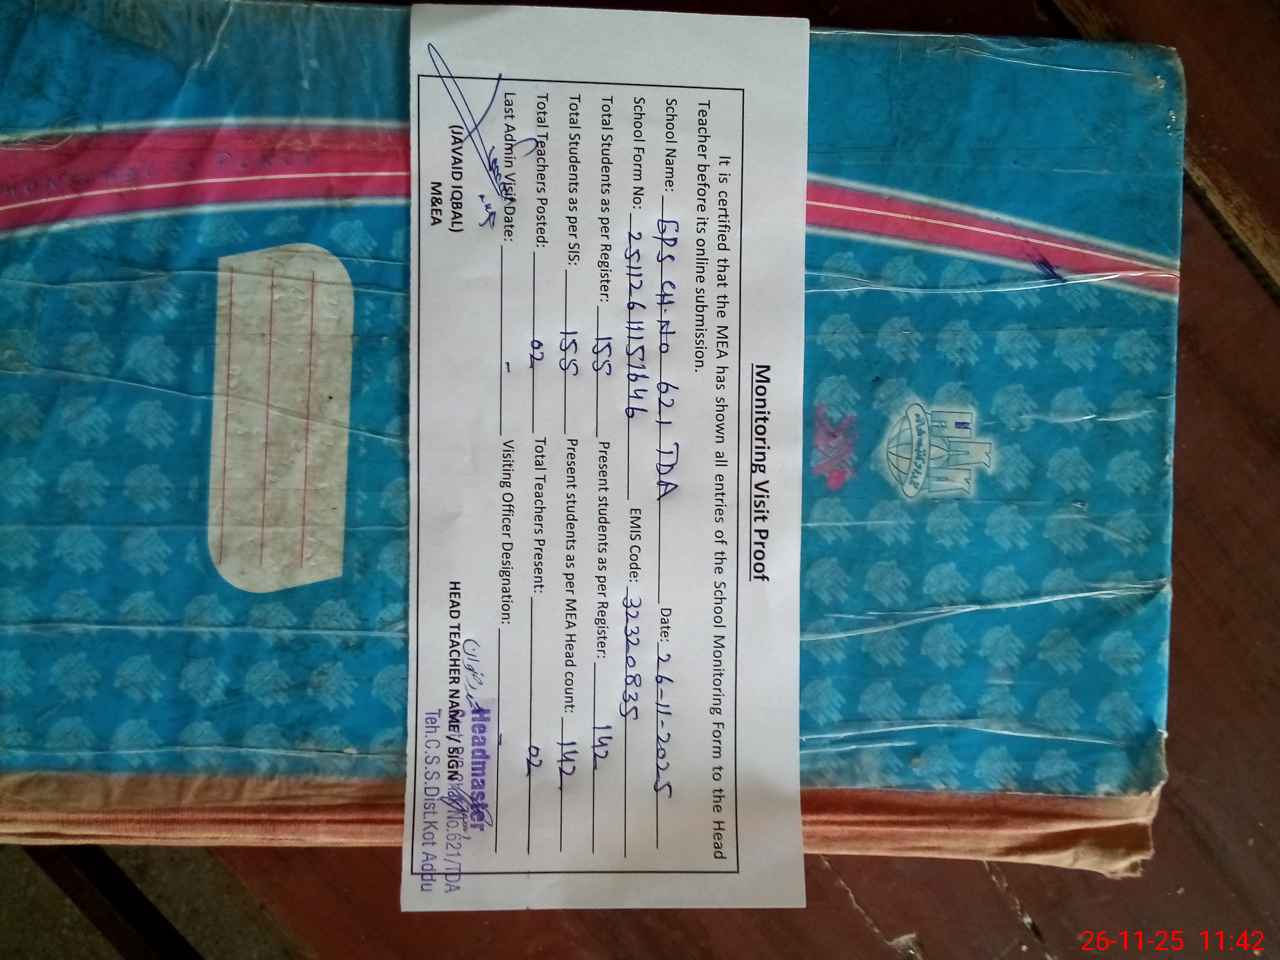 Monitoring Visit Proof
It is certified that the MEA has shown all entries of the School Monitoring Form to the Head
Teacher before its online submission.
School Name: GPS CH.No 621 TDA Date: 26-11-2025
School Form No: EMIS Code: 32320835
Total Students as per Register: 155 Present students as per Register: 142
Total Students as per SIS: 155 Present students as per MEA Head count: 142
Total Teachers Posted: 02 Total Teachers Present: 02
Last Admin Visit Date: - Visiting Officer Designation: -
(JAVAID IQBAL)
M&EA
Headmaster
HEAD TEACHER NAME / SIGN
No.621/TDA
Teh.C.S.S.Dist.Kot Addu
26-11-25 11:42